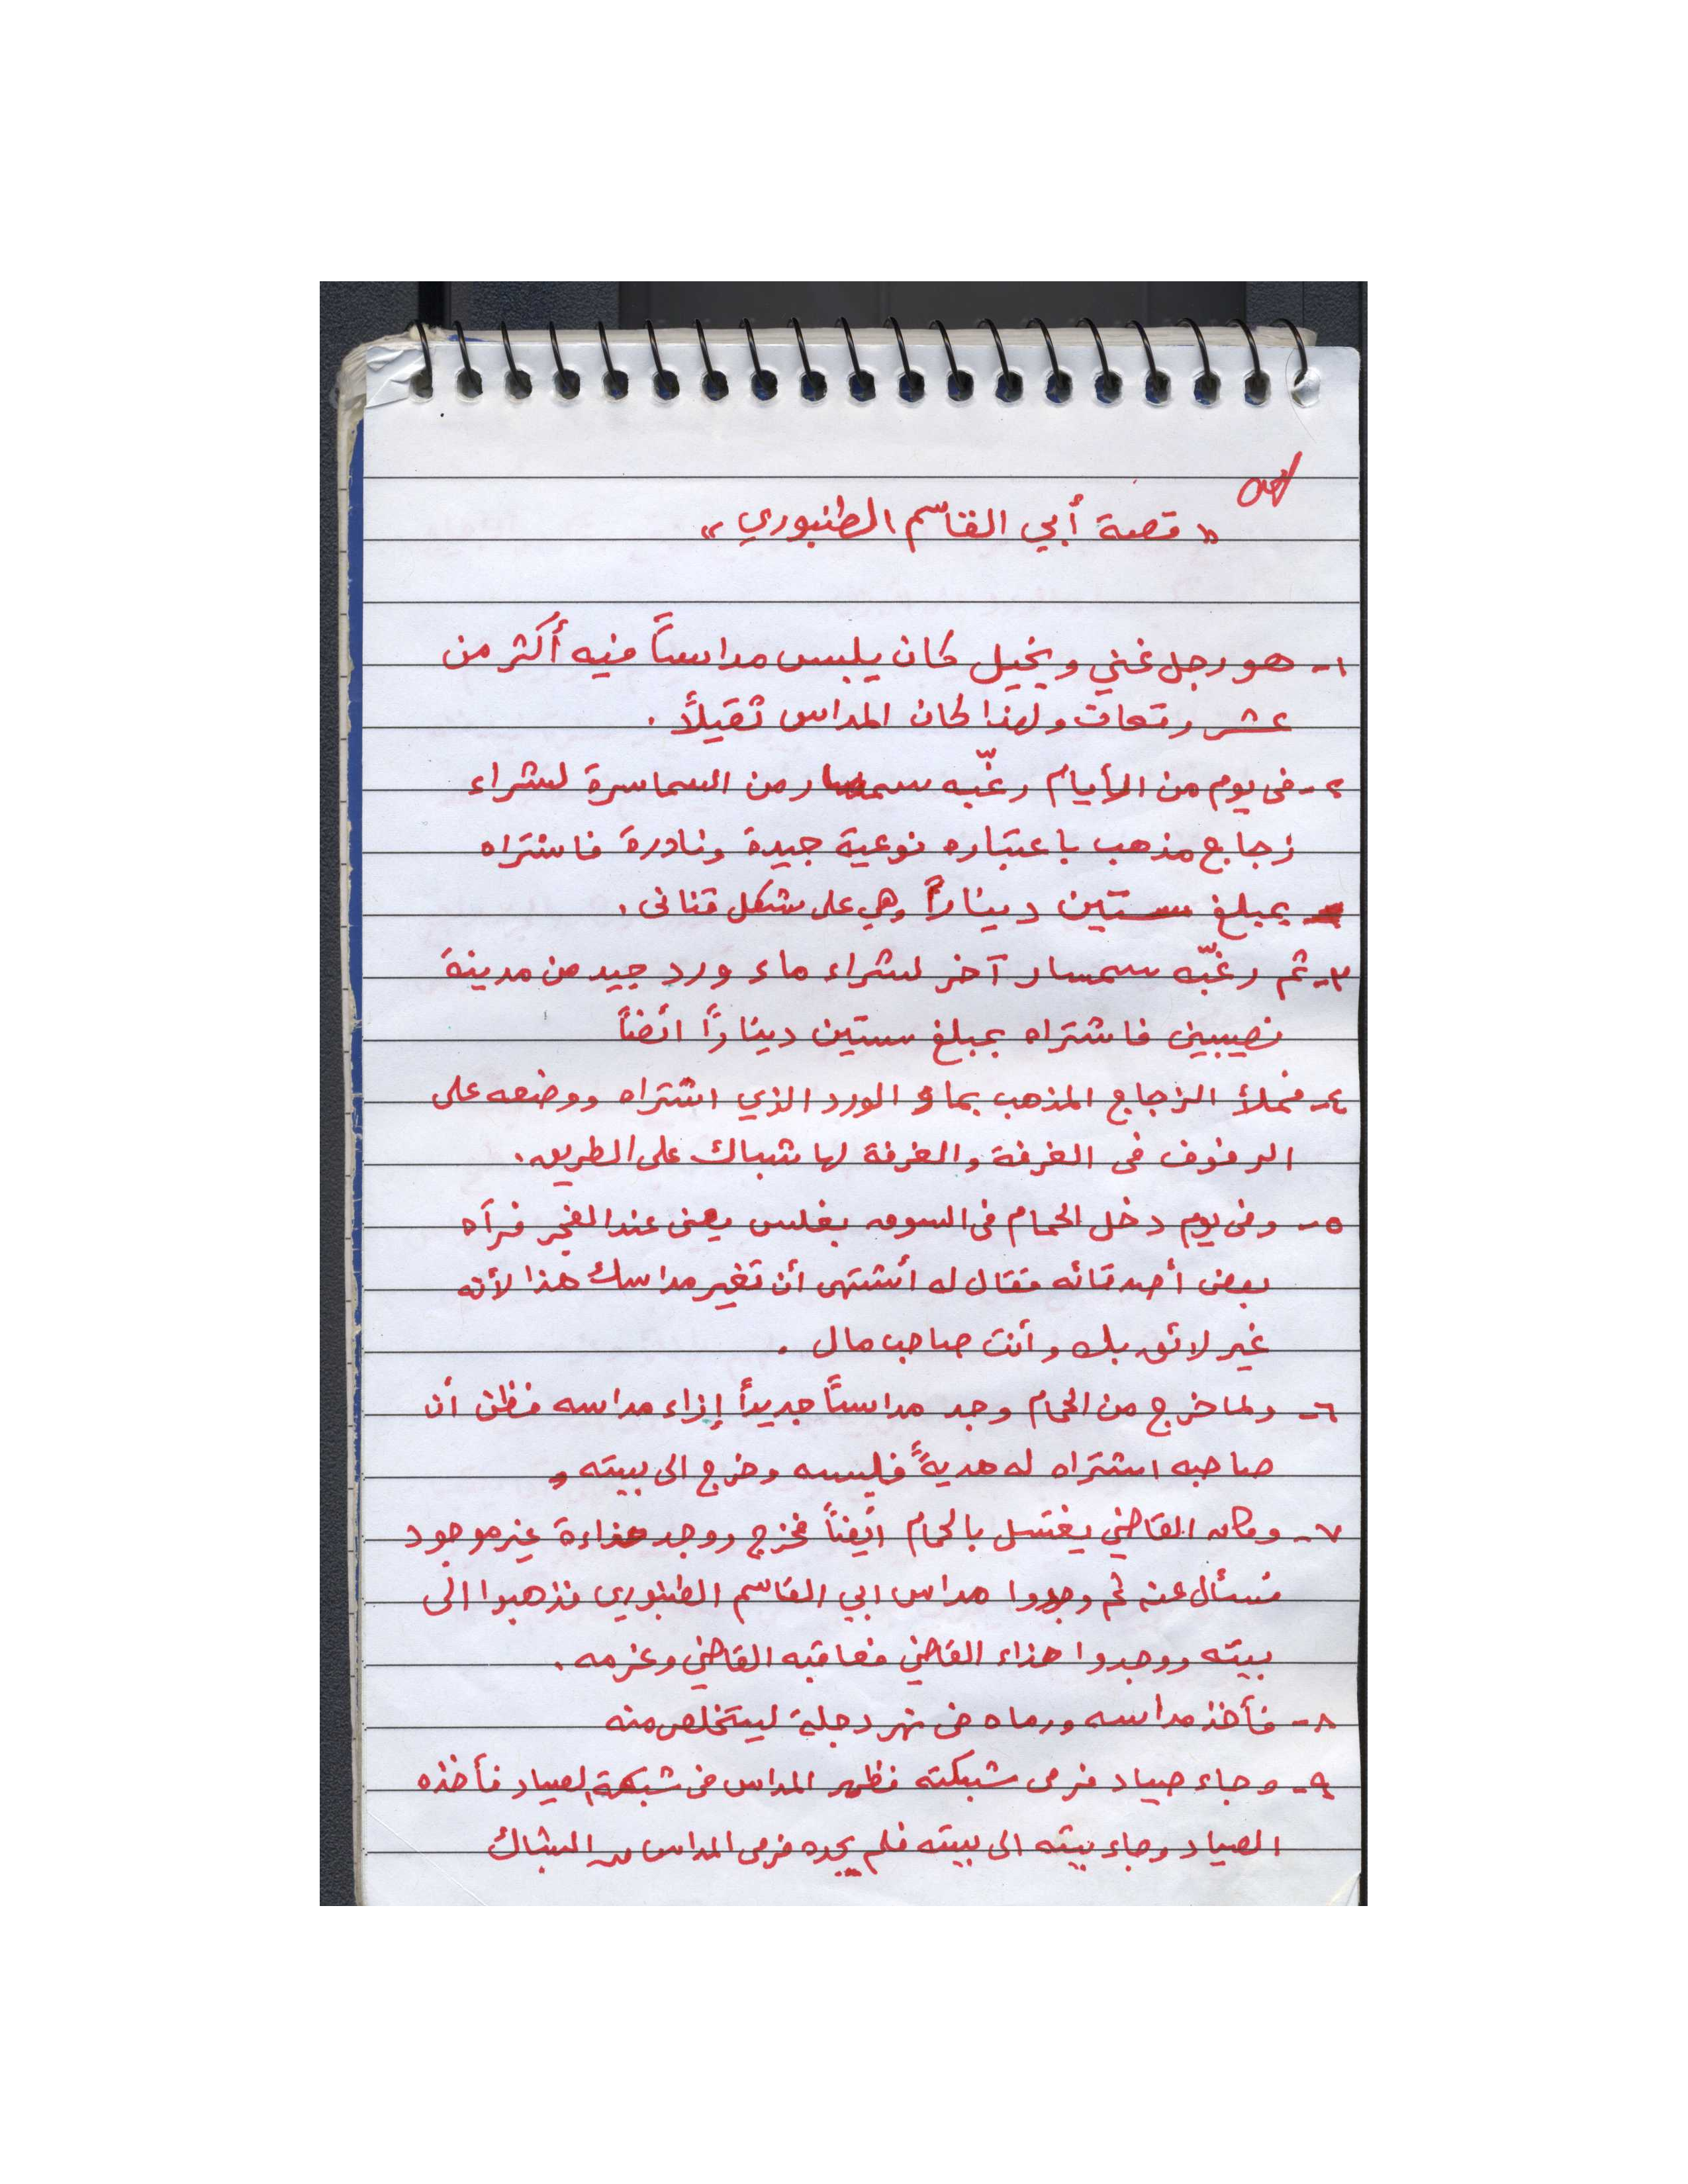 « قصة أبي القاسم الطنبوري »
١- هو رجل غني وبخيل كان يلبس مداساً فيه أكثر من
عشر رقعات ولهذا كان المداس ثقيلاً .
٢- في يوم من الأيام رغّبه سمسار من السماسرة لشراء
زجاج مذهب باعتباره نوعية جيدة ونادرة فاشتراه
بمبلغ ستين ديناراً وهي على شكل قناني .
٣- ثم رغّبه سمسار آخر لشراء ماء ورد جيد من مدينة
نصيبين فاشتراه بمبلغ ستين ديناراً ائضاً
٤- فملأ الزجاج المذهب بماء الورد الذي اشتراه ووضعه على
الرفوف في الغرفة والغرفة لها شباك على الطريق .
٥- وفي يوم دخل الحمام في السوق بغلس يعني عند الفجر فرآه
بعض أصدقائه فقال له أشتهي أن تغير مداسك هذا لأنه
غير لائق بك وأنت صاحب مال .
٦- ولما خرج من الحمام وجد مداساً جديداً إزاء مداسه فظن أن
صاحبه اشتراه له هديةً فلبسه وخرج الى بيته و
٧- وكان القاضي يغتسل بالحمام ائضاً فخرج ووجد حذاءة غير موجود
فسأل عنه ثم وجدوا مداس ابي القاسم الطنبوري فذهبوا الى
بيته ووجدوا حذاء القاضي فعاقبه القاضي وغرمه .
٨- فأخذ مداسه ورماه في نهر دجلة ليتخلص منه
٩- وجاء صياد فرمى شبكته فظهر المداس في شبكة الصياد فأخذه
الصياد وجاء بيته الى بيته فلم يجده فرمى المداس من الشباك